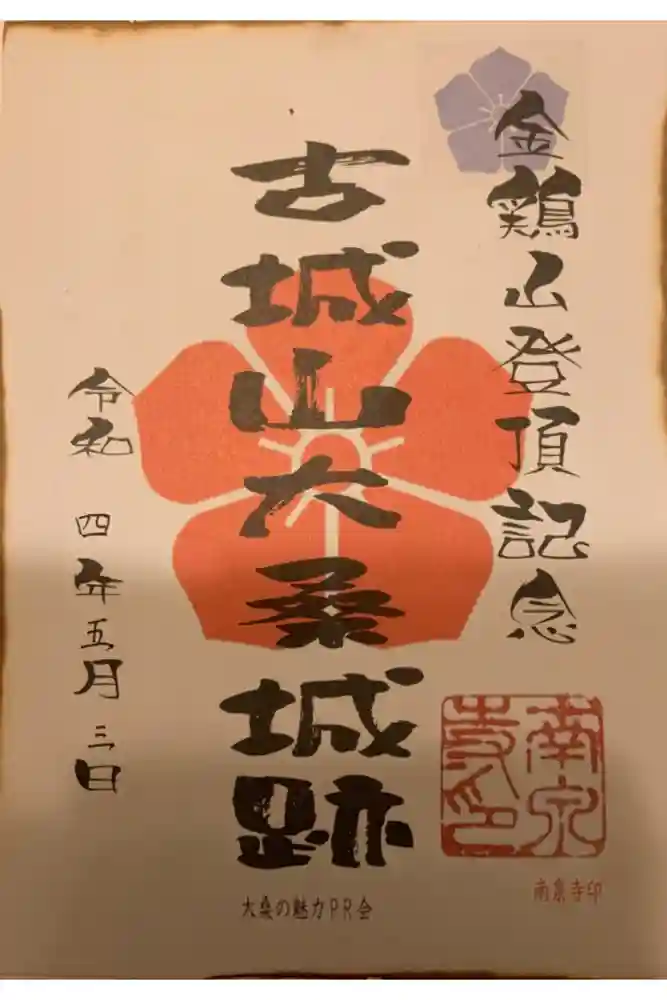 金鶏山登頂記念
古城山大桑城跡
令和四年五月三日
南泉寺印
南泉寺印
大桑の魅力PR会